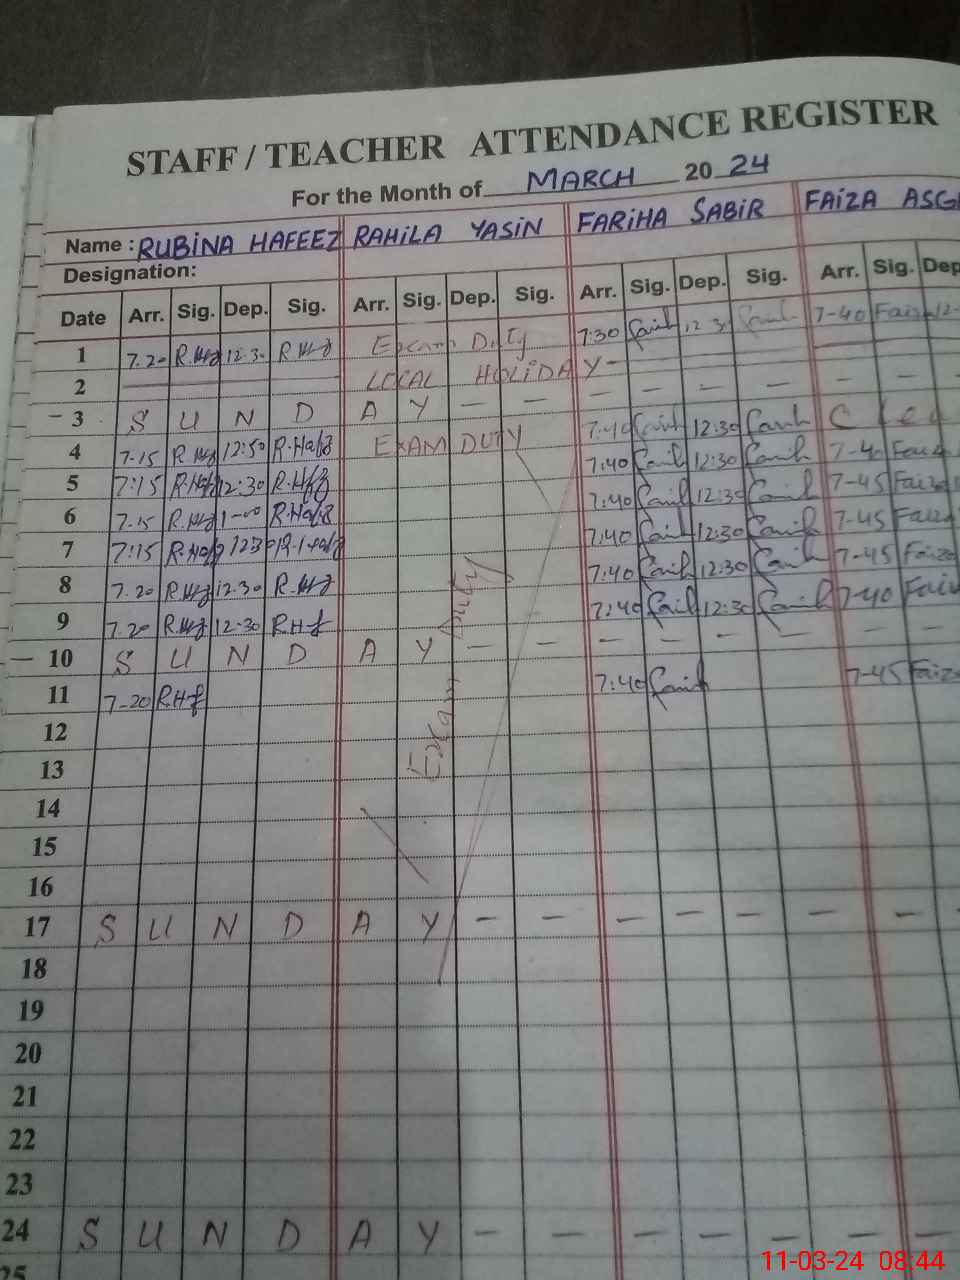 STAFF / TEACHER ATTENDANCE REGISTER
For the Month of MARCH 2024
Name : RUBINA HAFEEZ RAHILA YASIN FARIHA SABIR FAIZA
Designation:
Date Arr. Sig. Dep. Sig. Arr. Sig. Dep. Sig. Arr. Sig. Dep. Sig. Arr. Sig. Dep
1 7.20 12.30 Exam Duty 7:30 12 30 7-40 Faiza 12-
2 LOCAL HOLIDAY - - - - - -
- 3 S U N D A Y - -
4 7-15 12:50 R.Hafz EXAM DUTY 7:40 12:30
5 7:15 12:30 7:40 12:30 7-40 Faiza
6 7-15 1-00 R.Hafz 7:40 12:30 7-45 Faiza
7 7:15 1230 7:40 12:30 7-45 Faiza
8 7.20 12.30 7:40 12:30 7-45 Faiza
9 7.20 12-30 R.H.f 7:40 12:30 7-40 Faiza
- 10 S U N D A Y - - - - - - - -
11 7-20 R.H.f 7:40 7-45 Faiza
Exam Duty
12
13
14
15
16
17 S U N D A Y - - - - - - - -
18
19
20
21
22
23
24 S U N D A Y - - - - - - - -
25
11-03-24 08:44